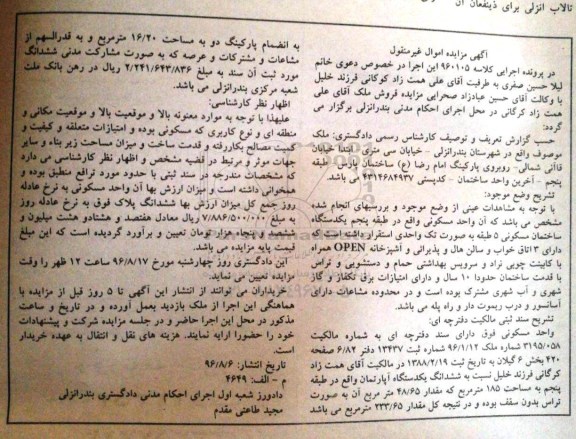 تالاب انزلی برای ذینفعان آن
آگهی مزایده اموال غیرمنقول
در پرونده اجرایی کلاسه ۹۶۰۱۰۵ این اجرا در خصوص دعوی خانم
لیلا حسین صفری به طرفیت آقای علی همت زاد کوگانی فرزند خلیل
با وکالت آقای حسین عبادزاد صحرایی مزایده فروش ملک آقای علی
همت زاد کرگانی در محل اجرای احکام مدنی بندرانزلی برگزار می
گردد:
حسب گزارش تعریف و توصیف کارشناس رسمی دادگستری: ملک
موصوف واقع در شهرستان بندرانزلی - خیابان سی متری - ابتدا خیابان
قاآنی شمالی- روبروی پارکینگ امام رضا (ع) ساختمان پارس - طبقه
پنجم - آخرین واحد ساختمان - کدپستی ۴۳۱۴۶۸۴۹۳۷ می باشد.
تشریح وضع موجود:
با توجه به مشاهدات عینی از وضع موجود و بررسیهای انجام شده
مشخص می باشد که آن واحد مسکونی واقع در طبقه پنجم یکدستگاه
ساختمان مسکونی ۵ طبقه به صورت تک واحدی استقرار داشته است که
دارای ۳ اتاق خواب و سالن هال و پذیرائی و آشپزخانه OPEN همراه
با کابینت چوبی نراد و سرویس بهداشتی حمام و دستشویی و تراس
با قدمت ساختمان حدودا ۱۰ سال و دارای امتیازات برق تکفاز و گاز
شهری و آب شهری مشترک بوده است و در محدوده مشاعات دارای
آسانسور و درب ریموت دار و راه پله می باشد.
تشریح سند ثبتی مالکیت دفترچه ای:
واحد مسکونی فوق دارای سند دفترچه ای به شماره مالکیت
۳۱۹۵/۰۵۸ شماره ملک ۹۶/۱/۱۲ شماره ثبت ۱۳۴۳۷ دفتر ۶/۸۲ صفحه
۴۲۰ بخش ۶ گیلان به تاریخ ثبت ۱۳۸۸/۲/۱۹ در مالکیت آقای همت زاد
کرگانی فرزند خلیل نسبت به ششدانگ یکدستگاه آپارتمان واقع در طبقه
پنجم به مساحت ۱۸۵ مترمربع که مقدار ۴۸/۶۵ متر مربع آن به صورت
تراس بدون سقف بوده و در نتیجه کل مقدار ۲۳۳/۶۵ مترمربع می باشد
به انضمام پارکینگ دو به مساحت ۱۶/۲۰ مترمربع و به قدرالسهم از
مشاعات و مشترکات و عرصه که به صورت مشارکت مدنی ششدانگ
مورد ثبت آن سند به مبلغ ۲/۲۴۱/۶۴۳/۸۳۶ ریال در رهن بانک ملت
شعبه مرکزی بندرانزلی می باشد.
اظهار نظر کارشناسی:
علیهذا با توجه به موارد معنونه بالا و موقعیت بالا و موقعیت مکانی و
منطقه ای و نوع کاربری که مسکونی بوده و امتیازات متعلقه و کیفیت و
کمیت مصالح بکاررفته و قدمت ساخت و میزان مساحت زیر بناء و سایر
جهات موثر و مرتبط در قضیه مشخص و اظهار نظر کارشناسی می دارد
که مشخصات مندرجه در سند ثبتی با حدود مورد توافق منطبق بوده و
همخوانی داشته است و میزان ارزش بها آن واحد مسکونی به نرخ عادله
روز جمع کل میزان ارزش بها ششدانگ پلاک فوق به نرخ عادله روز
به مبلغ ۷/۸۸۶/۵۰۰/۰۰۰ ریال معادل هفتصد و هشتادو هشت میلیون و
ششصد و پنجاه هزار تومان تعیین و برآورد گردیده است که این مبلغ
قیمت پایه مزایده می باشد.
این دادگستری روز چهارشنبه مورخ ۹۶/۸/۱۷ ساعت ۱۲ ظهر را وقت
مزایده تعیین می نماید.
خریداران می توانند از انتشار این آگهی تا ۵ روز قبل از مزایده با
هماهنگی این اجرا از ملک بازدید بعمل آورده و در تاریخ و ساعت
مذکور در محل این اجرا حاضر و در جلسه مزایده شرکت و پیشنهادات
خود را حضورا ارایه نمایند. هزینه های نقل و انتقال به عهده خریدار
است.
تاریخ انتشار: ۹۶/۸/۶
م - الف: ۴۶۴۹
دادورز شعبه اول اجرای احکام مدنی دادگستری بندرانزلی
مجید طاعتی مقدم